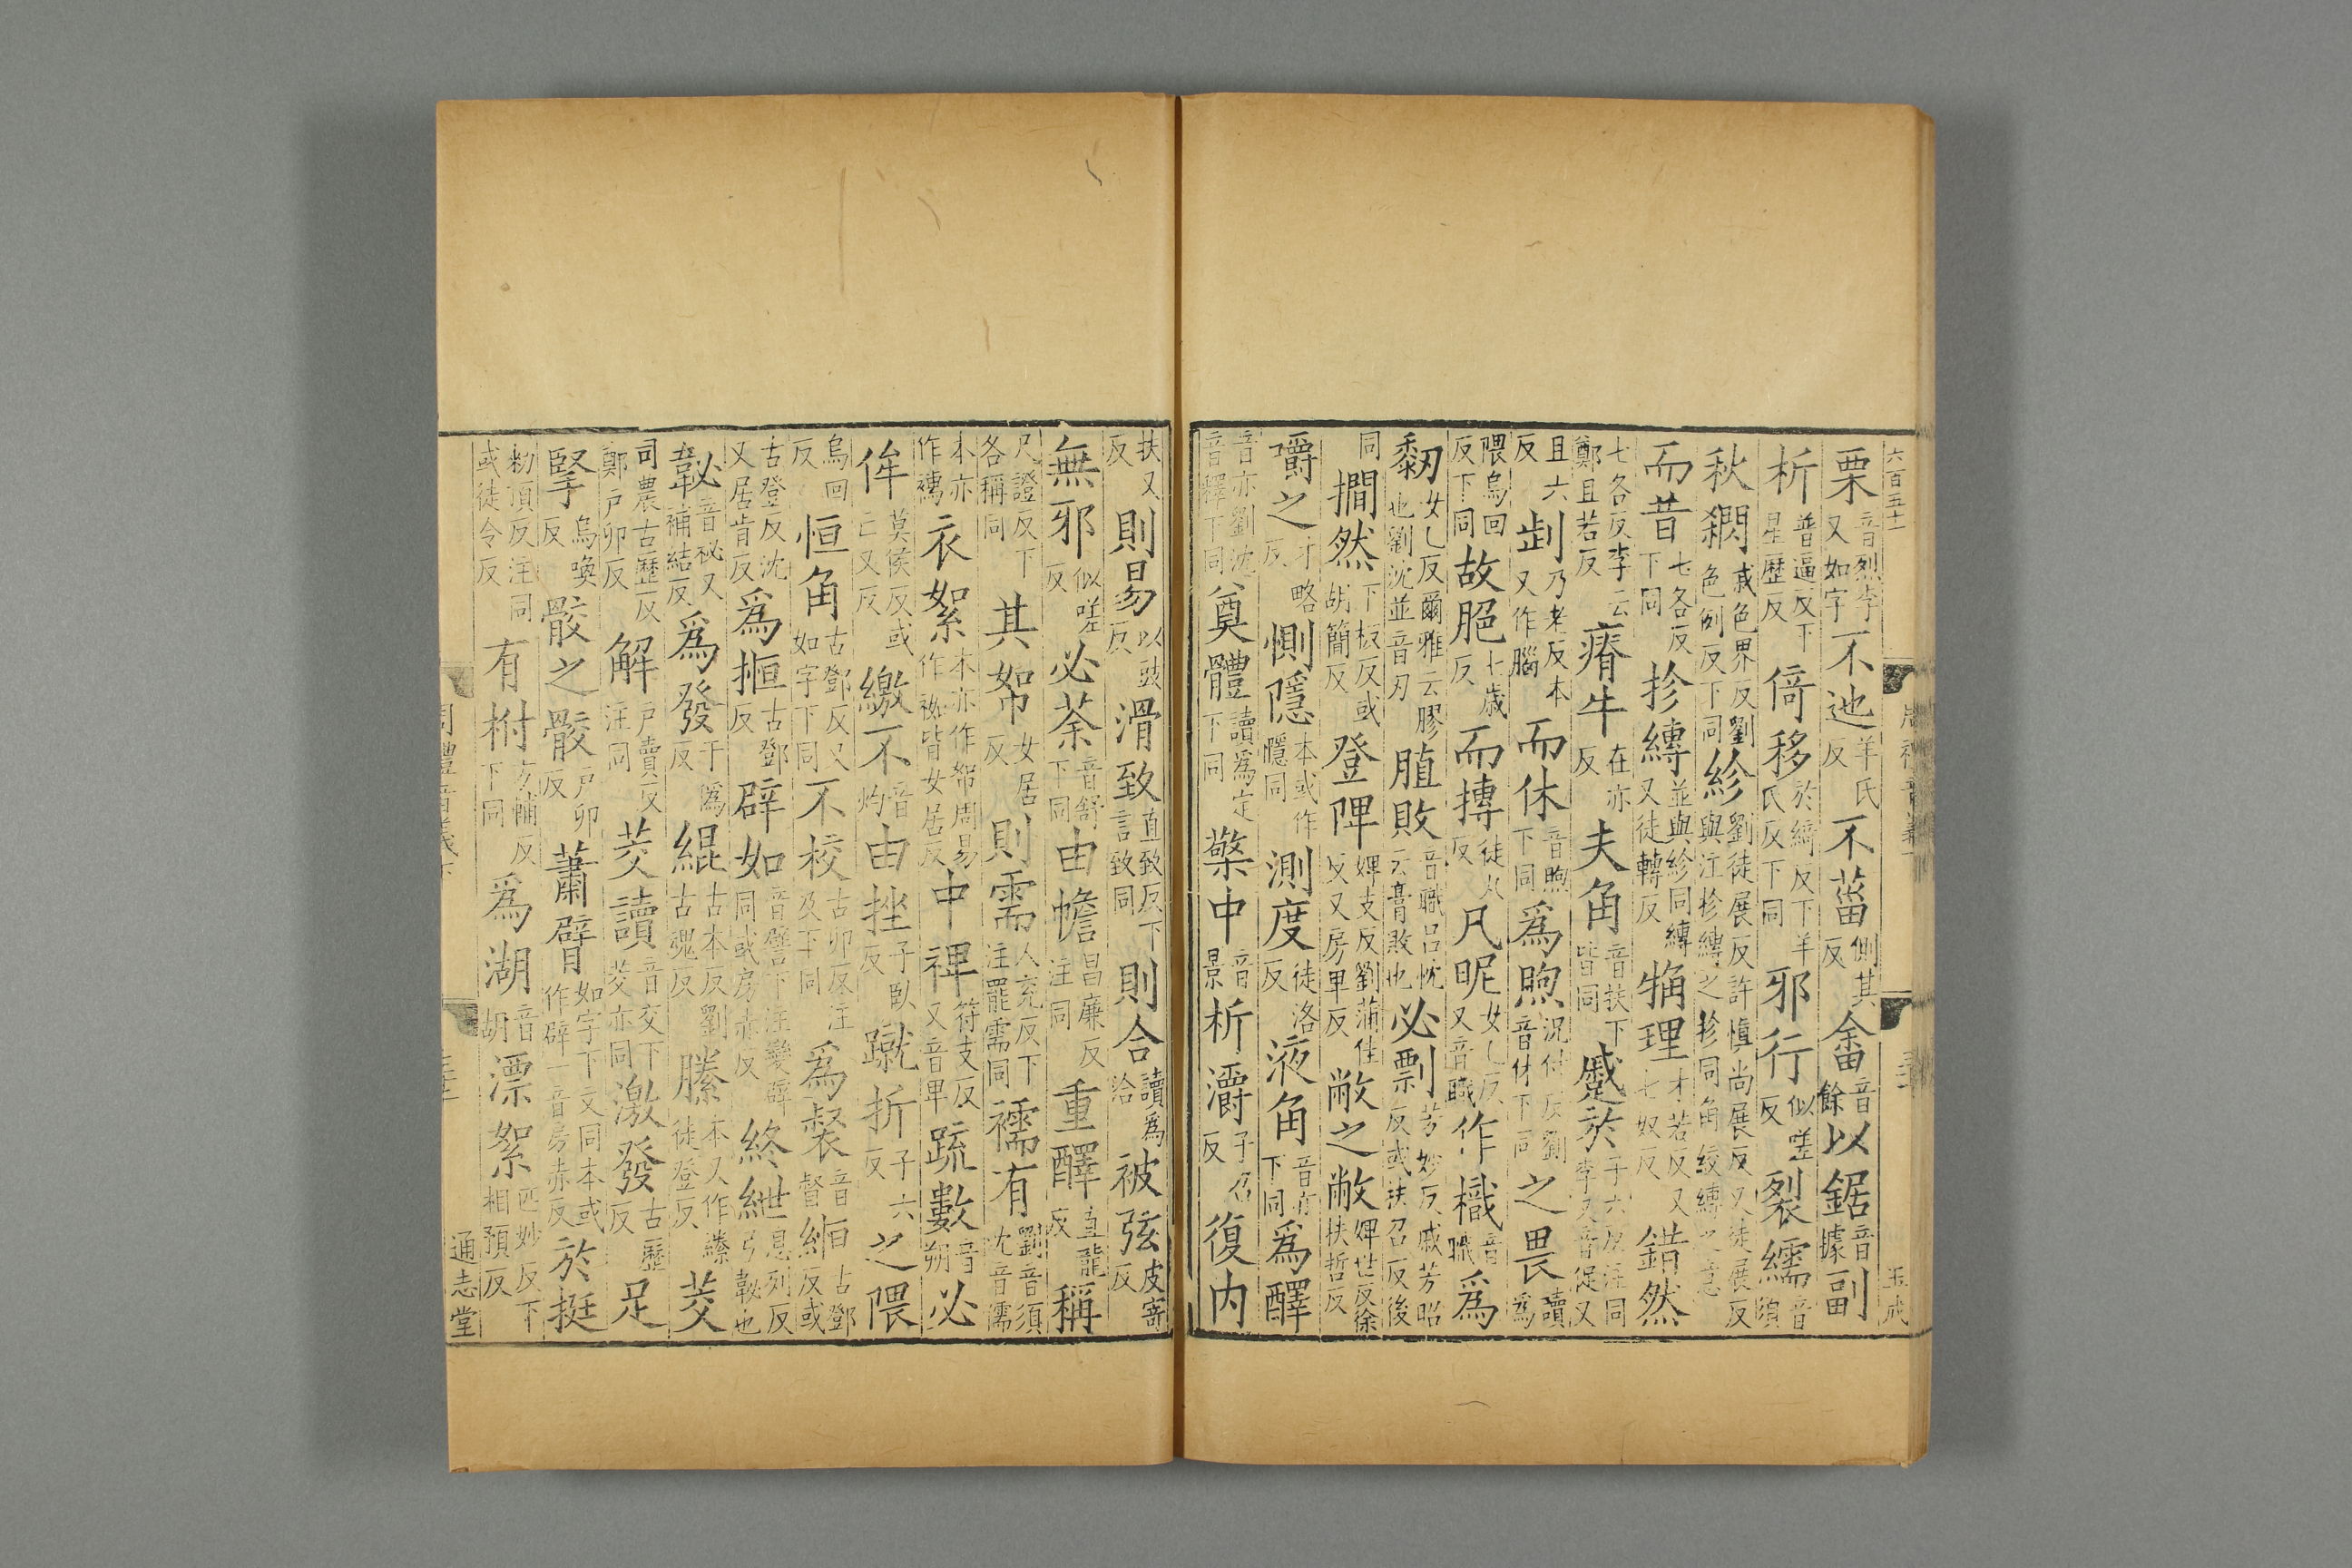 六百五十一
栗音烈李又如字不迆羊氏反不菑側其反畬音餘以鋸音據副
析普逼反下星歷反倚移於綺反下羊氏反下同邪行似嗟反裂繻音須
秋閷戚色界反劉色例反下同紾劉徒展反許愼尚展反又徒展反與注抮縳之抮同角絞縳之意
而昔七各反下同抮縳並與紾同縳又徒轉反觕理才若反又七奴反錯然
七各反李云鄭且若反瘠牛在亦反夫角音扶下皆同蹙於子六反注同李又音促又
且六反㓨乃老反本又作腦而休音煦下同爲煦況付反劉音休下同之畏讀爲
隈烏回反下同故脃七歲反而摶徒丸反凡昵女乙反又音職作樴音職爲
䵒女乙反爾雅云膠也劉沈並音刃䐈敗音職呂忱云膏敗也必剽芳妙反戚芳昭反或扶召反後
同撊然下板反或胡簡反登陴婢支反劉蒲佳反又房卑反敝之敝婢世反徐扶哲反
嚼之才略反惻隱本或作㥯同測度徒洛反液角音亦下同爲醳
音亦劉沈音釋下同奠體讀爲定下同檠中音景析灂子召反復內
扶又反則易以豉反滑致直致反下言致同則合讀爲洽被弦皮寄反
無邪似嗟反必荼音舒下同由幨昌廉反注同重醳直龍反稱
尺證反下各稱同其帤女居反則需人兖反下注罷需同襦有劉音須沈音儒
本亦作襦衣絮本亦作帤周易作袽皆女居反中裨符支反又音卑疏數音朔必
侔莫侯反或亡又反繳不音灼由挫子臥反蹴折子六反之隈
烏回反恒角古鄧反又如字下同不校古卯反注及下同爲裻音督縆古鄧反或
古登反沈又居肯反爲㮓古鄧反辟如音譬下注變辟同或房赤反終紲息列反弓䪐也
䪐音祕又補結反爲發于僞反緄古本反劉古魂反縢本又作幐徒登反茭
司農古歷反鄭戶卯反解戶賣反注同茭讀音交下茭亦同激發古歷反足
掔烏喚反骹之骹戶卯反蕭臂如字下文同本或作辟一音房赤反於挺
勑頂反注同或徒令反有柎方輔反下同爲湖音胡漂絮匹妙反下相預反
通志堂